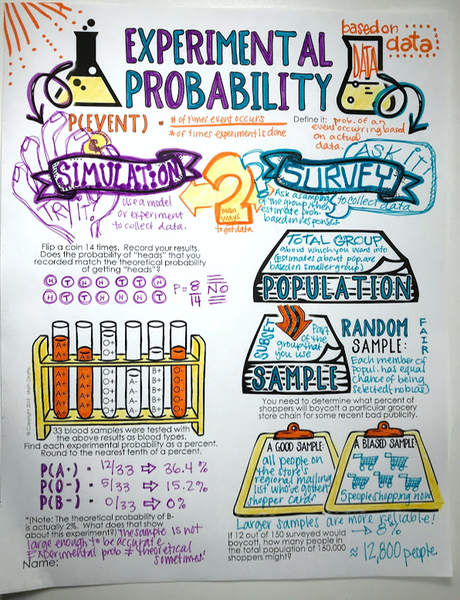 EXPERIMENTAL
PROBABILITY
based on
data:
DATA
P(EVENT) = # of times event occurs
# of times experiment is done
Define it: prob. of an
event occurring based
on actual
data.
SIMULATION
TRY IT!
use a model
or experiment
to collect data.
2
main
ways
to get data
SURVEY
ASK IT!
Ask a sampling
of the group
estimate prob.
based on responses
to collect data
Flip a coin 14 times. Record your results.
Does the probability of "heads" that you
recorded match the theoretical probability
of getting "heads"?
P = 8/14 NO
TOTAL GROUP
about which you want info
(Estimates about pop. are
based on smaller group)
POPULATION
SUBSET
Part of
the group that
you use
SAMPLE
RANDOM
SAMPLE:
FAIR
Each member of
popul. has equal
chance of being
selected (no bias)
33 blood samples were tested with
the above results as blood types.
Find each experimental probability as a percent.
Round to the nearest tenth of a percent.
P(A+) = 12/33 ⇨ 36.4 %
P(O-) = 5/33 ⇨ 15.2%
P(B-) = 0/33 ⇨ 0%
*(Note: The theoretical probability of B-
is actually 2%. What does that show
about this experiment? the sample is not
large enough to be accurate.
Experimental prob ≠ theoretical
sometimes!
Name:
You need to determine what percent of
shoppers will boycott a particular grocery
store chain for some recent bad publicity.
A GOOD SAMPLE
all people on
the store's
regional mailing
list who've gotten
shopper cards
A BIASED SAMPLE
5 people shopping now
Larger samples are more reliable!
If 12 out of 150 surveyed would
boycott, how many people in
the total population of 160,000
shoppers might?
→ 8%
≈ 12,800 people